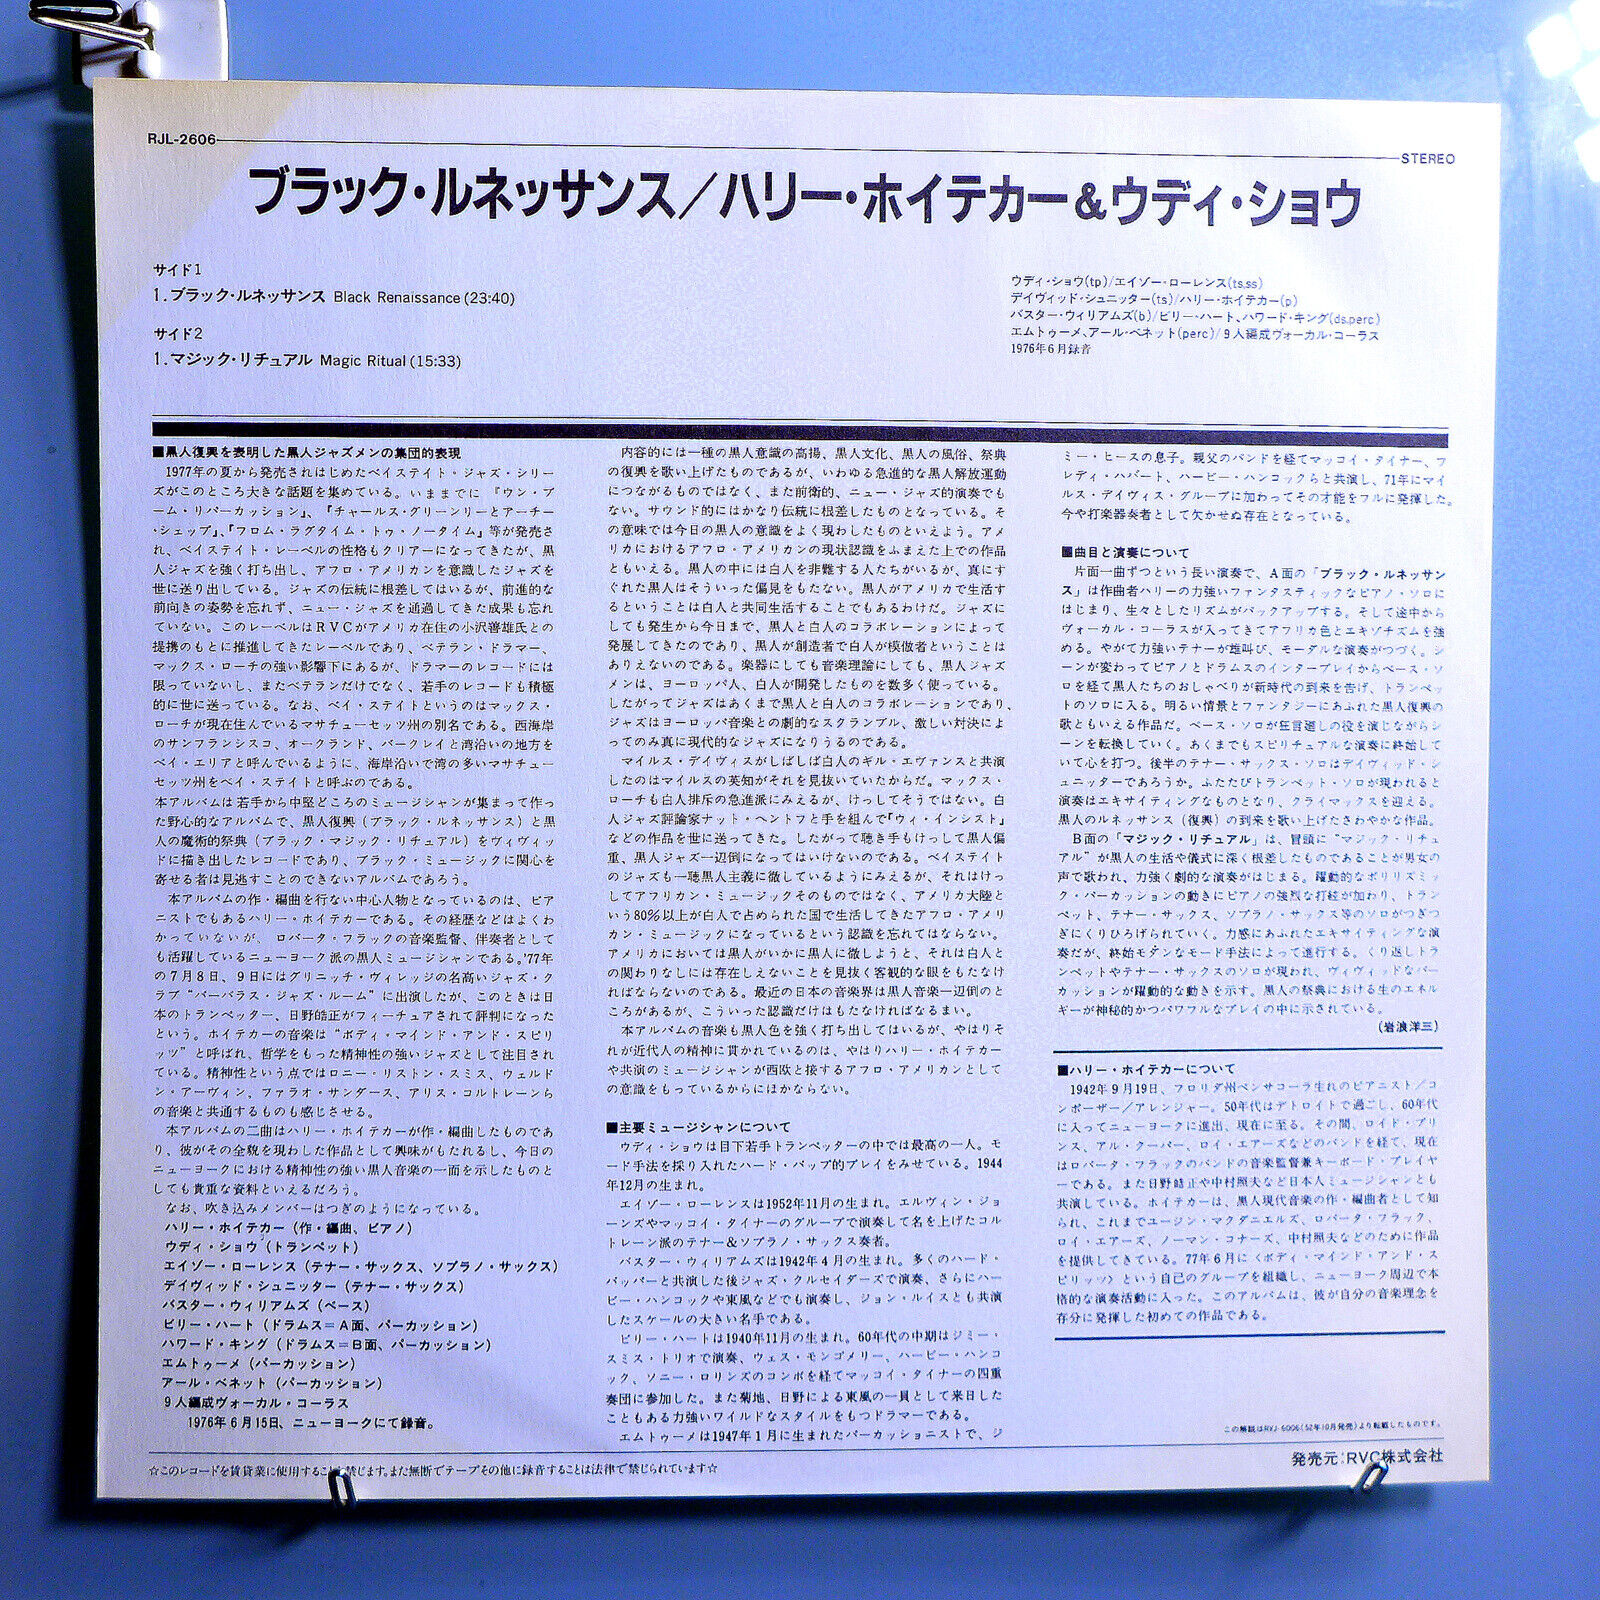 RJL-2606
STEREO
ブラック・ルネッサンス／ハリー・ホイテカー＆ウディ・ショウ
サイド1
1.ブラック・ルネッサンス Black Renaissance(23:40)
サイド2
1.マジック・リチュアル Magic Ritual(15:33)
ウディ・ショウ(tp)/エイゾー・ローレンス(ts,ss)
デイヴィッド・シュニッター(ts)/ハリー・ホイテカー(p)
バスター・ウィリアムズ(b)/ビリー・ハート、ハワード・キング(ds,perc)
エムトゥーメ、アール・ベネット(perc)/9人編成ヴォーカル・コーラス
1976年6月録音
■黒人復興を表明した黒人ジャズメンの集団的表現
1977年の夏から発売されはじめたベイステイト・ジャズ・シリー
ズがこのところ大きな話題を集めている。いままでに『ウン・ブ
ーム・リパーカッション』、『チャールス・グリーンリーとアーチー
・シェップ』、『フロム・ラグタイム・トゥ・ノータイム』等が発売さ
れ、ベイステイト・レーベルの性格もクリアーになってきたが、黒
人ジャズを強く打ち出し、アフロ・アメリカンを意識したジャズを
世に送り出している。ジャズの伝統に根差してはいるが、前進的な
前向きの姿勢を忘れず、ニュー・ジャズを通過してきた成果も忘れ
ていない。このレーベルはRVCがアメリカ在住の小沢善雄氏との
提携のもとに推進してきたレーベルであり、ベテラン・ドラマー、
マックス・ローチの強い影響下にあるが、ドラマーのレコードには
限っていないし、またベテランだけでなく、若手のレコードも積極
的に世に送っている。なお、ベイ・ステイトというのはマックス・
ローチが現在住んでいるマサチューセッツ州の別名である。西海岸
のサンフランシスコ、オークランド、バークレイと湾沿いの地方を
ベイ・エリアと呼んでいるように、海岸沿いで湾の多いマサチュー
セッツ州をベイ・ステイトと呼ぶのである。
本アルバムは若手から中堅どころのミュージシャンが集まって作っ
た野心的なアルバムで、黒人復興（ブラック・ルネッサンス）と黒
人の魔術的祭典（ブラック・マジック・リチュアル）をヴィヴィッ
ドに描き出したレコードであり、ブラック・ミュージックに関心を
寄せる者は見逃すことのできないアルバムであろう。
本アルバムの作・編曲を行ない中心人物となっているのは、ピア
ニストでもあるハリー・ホイテカーである。その経歴などはよくわ
かっていないが、ロバータ・フラックの音楽監督、伴奏者として
も活躍しているニューヨーク派の黒人ミュージシャンである。'77年
の7月8日、9日にはグリニッチ・ヴィレッジの名高いジャズ・ク
ラブ“バーバラス・ジャズ・ルーム”に出演したが、このときは日
本のトランペッター、日野皓正がフィーチュアされて評判になった
という。ホイテカーの音楽は“ボディ・マインド・アンド・スピリ
ッツ”と呼ばれ、哲学をもった精神性の強いジャズとして注目され
ている。精神性という点ではロニー・リストン・スミス、ウェルド
ン・アーヴィン、ファラオ・サンダース、アリス・コルトレーンら
の音楽と共通するものも感じさせる。
本アルバムの二曲はハリー・ホイテカーが作・編曲したものであ
り、彼がその全貌を現わした作品として興味がもたれるし、今日の
ニューヨークにおける精神性の強い黒人音楽の一面を示したものと
しても貴重な資料といえるだろう。
なお、吹き込みメンバーはつぎのようになっている。
ハリー・ホイテカー（作・編曲、ピアノ）
ウディ・ショウ（トランペット）
エイゾー・ローレンス（テナー・サックス、ソプラノ・サックス）
デイヴィッド・シュニッター（テナー・サックス）
バスター・ウィリアムズ（ベース）
ビリー・ハート（ドラムス＝A面、パーカッション）
ハワード・キング（ドラムス＝B面、パーカッション）
エムトゥーメ（パーカッション）
アール・ベネット（パーカッション）
9人編成ヴォーカル・コーラス
1976年6月15日、ニューヨークにて録音。
内容的には一種の黒人意識の高揚、黒人文化、黒人の風俗、祭典
の復興を歌い上げたものであるが、いわゆる急進的な黒人解放運動
につながるものではなく、また前衛的、ニュー・ジャズ的演奏でも
ない。サウンド的にはかなり伝統に根差したものとなっている。そ
の意味では今日の黒人の意識をよく現わしたものといえよう。アメ
リカにおけるアフロ・アメリカンの現状認識をふまえた上での作品
ともいえる。黒人の中には白人を非難する人たちがいるが、真にす
ぐれた黒人はそういった偏見をもたない。黒人がアメリカで生活す
るということは白人と共同生活することでもあるわけだ。ジャズに
しても発生から今日まで、黒人と白人のコラボレーションによって
発展してきたのであり、黒人が創造者で白人が模倣者ということは
ありえないのである。楽器にしても音楽理論にしても、黒人ジャズ
メンは、ヨーロッパ人、白人が開発したものを数多く使っている。
したがってジャズはあくまで黒人と白人のコラボレーションであり、
ジャズはヨーロッパ音楽との劇的なスクランブル、激しい対決によ
ってのみ真に現代的なジャズになりうるのである。
マイルス・デイヴィスがしばしば白人のギル・エヴァンスと共演
したのはマイルスの英知がそれを見抜いていたからだ。マックス・
ローチも白人排斥の急進派にみえるが、けっしてそうではない。白
人ジャズ評論家ナット・ヘントフと手を組んで『ウィ・インシスト』
などの作品を世に送ってきた。したがって聴き手もけっして黒人偏
重、黒人ジャズ一辺倒になってはいけないのである。ベイステイト
のジャズも一聴黒人主義に徹しているようにみえるが、それはけっ
してアフリカン・ミュージックそのものではなく、アメリカ大陸と
いう80%以上が白人で占められた国で生活してきたアフロ・アメリ
カン・ミュージックになっているという認識を忘れてはならない。
アメリカにおいては黒人がいかに黒人に徹しようと、それは白人と
の関わりなしには存在しえないことを見抜く客観的な眼をもたなけ
ればならないのである。最近の日本の音楽界は黒人音楽一辺倒のと
ころがあるが、こういった認識だけはもたなければなるまい。
本アルバムの音楽も黒人色を強く打ち出してはいるが、やはりそ
れが近代人の精神に貫かれているのは、やはりハリー・ホイテカー
や共演のミュージシャンが西欧と接するアフロ・アメリカンとして
の意識をもっているからにほかならない。
■主要ミュージシャンについて
ウディ・ショウは目下若手トランペッターの中では最高の一人。モ
ード手法を採り入れたハード・バップ的プレイをみせている。1944
年12月の生まれ。
エイゾー・ローレンスは1952年11月の生まれ。エルヴィン・ジョ
ーンズやマッコイ・タイナーのグループで演奏して名を上げたコル
トレーン派のテナー＆ソプラノ・サックス奏者。
バスター・ウィリアムズは1942年4月の生まれ。多くのハード・
バッパーと共演した後ジャズ・クルセイダーズで演奏、さらにハー
ビー・ハンコックや東風などでも演奏し、ジョン・ルイスとも共演
したスケールの大きい名手である。
ビリー・ハートは1940年11月の生まれ。60年代の中期はジミー・
スミス・トリオで演奏、ウェス・モンゴメリー、ハービー・ハンコ
ック、ソニー・ロリンズのコンボを経てマッコイ・タイナーの四重
奏団に参加した。また菊地、日野による東風の一員として来日した
こともある力強いワイルドなスタイルをもつドラマーである。
エムトゥーメは1947年1月に生まれたパーカッショニストで、ジ
ミー・ヒースの息子。親父のバンドを経てマッコイ・タイナー、フ
レディ・ハバート、ハービー・ハンコックらと共演し、71年にマイ
ルス・デイヴィス・グループに加わってその才能をフルに発揮した。
今や打楽器奏者として欠かせぬ存在となっている。
■曲目と演奏について
片面一曲ずつという長い演奏で、A面の「ブラック・ルネッサン
ス」は作曲者ハリーの力強いファンタスティックなピアノ・ソロに
はじまり、生々としたリズムがバックアップする。そして途中から
ヴォーカル・コーラスが入ってきてアフリカ色とエキゾチズムを強
める。やがて力強いテナーが雄叫び、モーダルな演奏がつづく。シ
ーンが変わってピアノとドラムスのインタープレイからベース・ソ
ロを経て黒人たちのおしゃべりが新時代の到来を告げ、トランペッ
トのソロに入る。明るい情景とファンタジーにあふれた黒人復興の
歌ともいえる作品だ。ベース・ソロが狂言廻しの役を演じながらシ
ーンを転換していく。あくまでもスピリチュアルな演奏に終始して
いて心を打つ。後半のテナー・サックス・ソロはデイヴィッド・シ
ュニッターであろうか。ふたたびトランペット・ソロが現われると
演奏はエキサイティングなものとなり、クライマックスを迎える。
黒人のルネッサンス（復興）の到来を歌い上げたさわやかな作品。
B面の「マジック・リチュアル」は、冒頭に“マジック・リチュ
アル”が黒人の生活や儀式に深く根差したものであることが男女の
声で歌われ、力強く劇的な演奏がはじまる。躍動的なポリリズミッ
ク・パーカッションの動きにピアノの強烈な打絃が加わり、トラン
ペット、テナー・サックス、ソプラノ・サックス等のソロがつぎつ
ぎにくりひろげられていく。力感にあふれたエキサイティングな演
奏だが、終始モダンなモード手法によって進行する。くり返しトラ
ンペットやテナー・サックスのソロが現われ、ヴィヴィッドなパー
カッションが躍動的な動きを示す。黒人の祭典における生のエネル
ギーが神秘的かつパワフルなプレイの中に示されている。
（岩浪洋三）
■ハリー・ホイテカーについて
1942年9月19日、フロリダ州ペンサコーラ生れのピアニスト／コ
ンポーザー／アレンジャー。50年代はデトロイトで過ごし、60年代
に入ってニューヨークに進出、現在に至る。その間、ロイド・プリ
ンス、アル・クーパー、ロイ・エアーズなどのバンドを経て、現在
はロバータ・フラックのバンドの音楽監督兼キーボード・プレイヤ
ーである。また日野皓正や中村照夫など日本人ミュージシャンとも
共演している。ホイテカーは、黒人現代音楽の作・編曲者として知
られ、これまでユージン・マクダニエルズ、ロバータ・フラック、
ロイ・エアーズ、ノーマン・コナーズ、中村照夫などのために作品
を提供してきている。77年6月に〈ボディ・マインド・アンド・ス
ピリッツ〉という自己のグループを組織し、ニューヨーク周辺で本
格的な演奏活動に入った。このアルバムは、彼が自分の音楽理念を
存分に発揮した初めての作品である。
この解説はRVJ-6006(52年10月発売)より転載したものです。
☆このレコードを賃貸業に使用することを禁じます。また無断でテープその他に録音することは法律で禁じられています☆
発売元：RVC株式会社